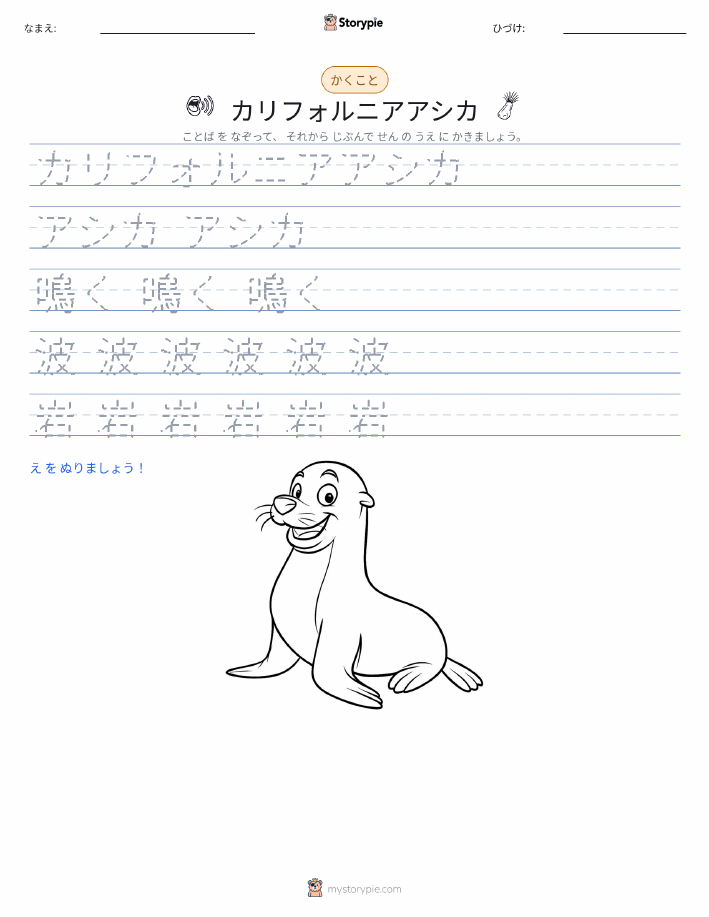 なまえ:
Storypie
ひづけ:
かくこと
カリフォルニアアシカ
ことば を なぞって、 それから じぶんで せん の うえ に かきましょう。
カリフォルニアアシカ
アシカ アシカ
鳴く 鳴く 鳴く
波 波 波 波 波 波
岩 岩 岩 岩 岩 岩
え を ぬりましょう！
mystorypie.com